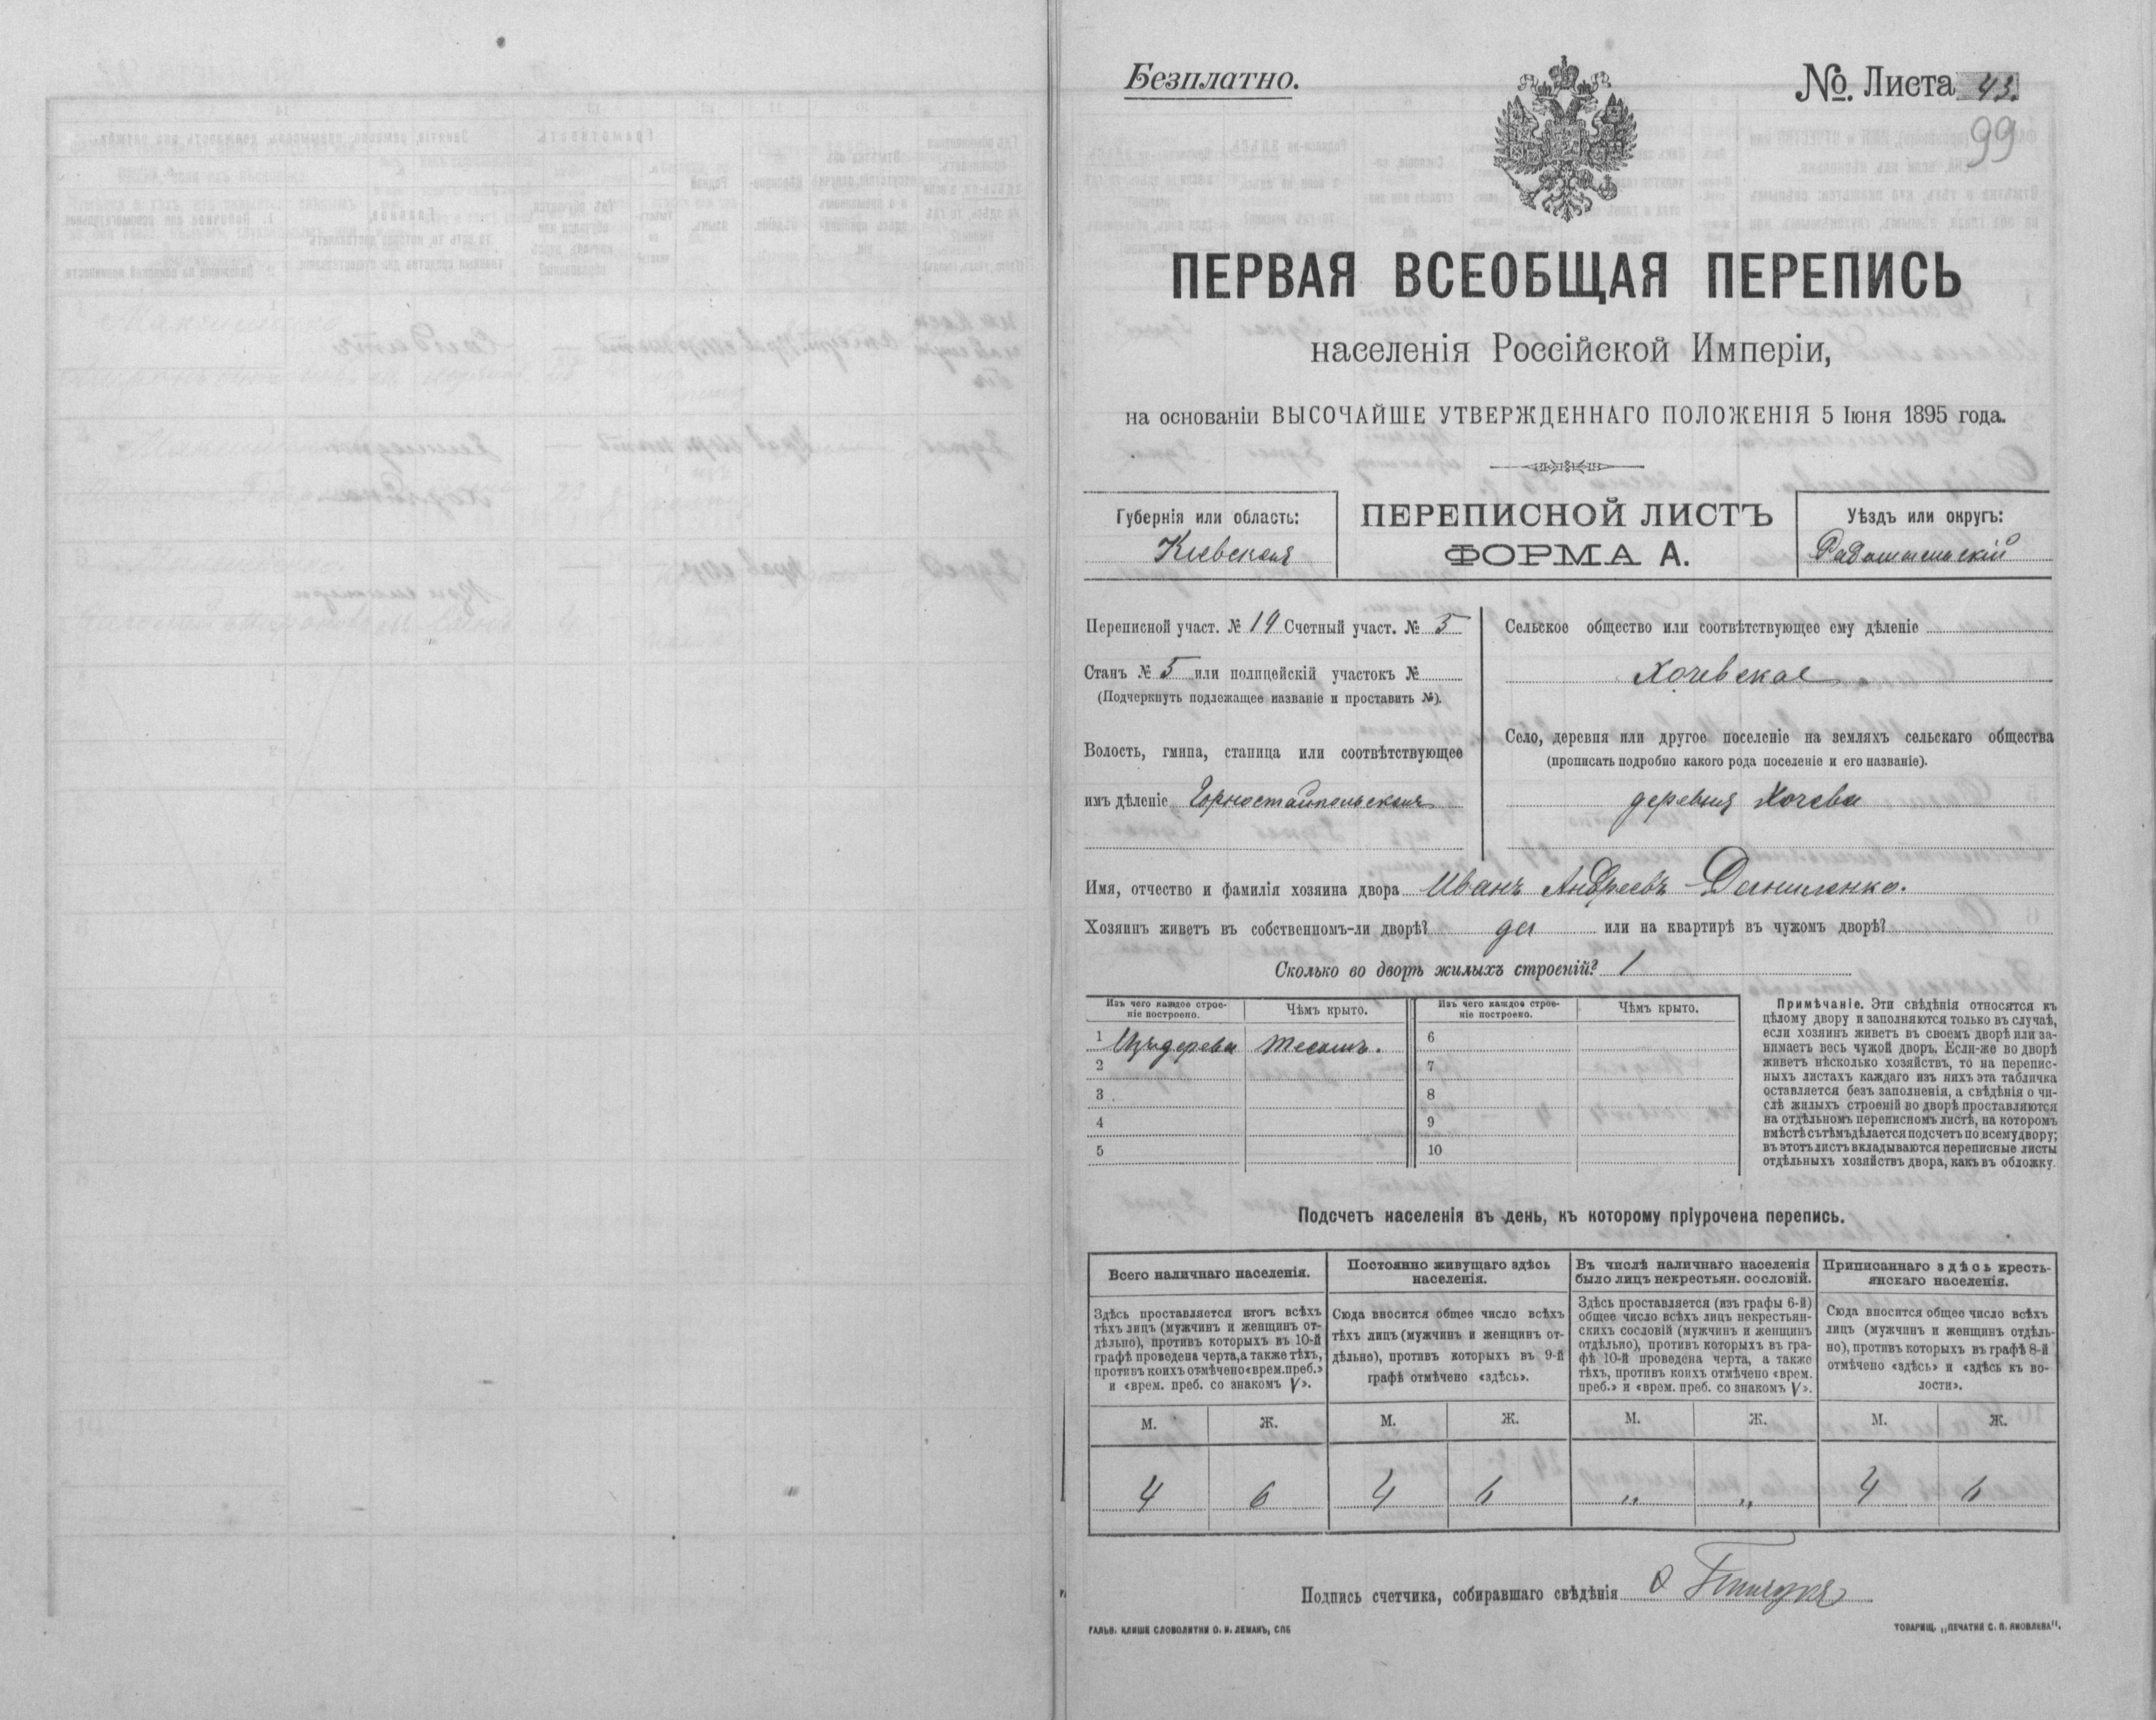 Безплатно.
№. Листа 43.
99
ПЕРВАЯ ВСЕОБЩАЯ ПЕРЕПИСЬ
населенія Россійской Имперіи,
на основаніи ВЫСОЧАЙШЕ УТВЕРЖДЕННАГО ПОЛОЖЕНІЯ 5 Іюня 1895 года.
Губернія или область:
Кіевская
ПЕРЕПИСНОЙ ЛИСТЪ
ФОРМА А.
Уѣздъ или округъ:
Радомысльскій
Переписной участ. № 19 Счетный участ. № 5
Станъ № 5 или полицейскій участокъ №
(Подчеркнуть подлежащее названіе и проставить №).
Волость, гмина, станица или соотвѣтствующее
имъ дѣленіе Горностайпольская
Сельское общество или соотвѣтствующее ему дѣленіе
Хочевское
Село, деревня или другое поселеніе на земляхъ сельскаго общества
(прописать подробно какого рода поселеніе и его названіе).
деревня Хочева
Имя, отчество и фамилія хозяина двора Иванъ Андреевъ Даниленко.
Хозяинъ живетъ въ собственномъ-ли дворѣ? да или на квартирѣ въ чужомъ дворѣ?
Сколько во дворѣ жилыхъ строеній? 1
Изъ чего каждое строе-
ніе построено.
Чѣмъ крыто.
Изъ чего каждое строе-
ніе построено.
Чѣмъ крыто.
1 Изъ дерева тесомъ. 6
2 7
3 8
4 9
5 10
Примѣчаніе. Эти свѣдѣнія относятся къ
цѣлому двору и заполняются только въ случаѣ,
если хозяинъ живетъ въ своемъ дворѣ или за-
нимаетъ весь чужой дворъ. Если-же во дворѣ
живетъ нѣсколько хозяйствъ, то на перепис-
ныхъ листахъ каждаго изъ нихъ эта табличка
оставляется безъ заполненія, а свѣдѣнія о чи-
слѣ жилыхъ строеній во дворѣ проставляются
на отдѣльномъ переписномъ листѣ, на которомъ
вмѣстѣ съ тѣмъ дѣлается подсчетъ по всему двору;
въ этотъ листъ вкладываются переписные листы
отдѣльныхъ хозяйствъ двора, какъ въ обложку.
Подсчетъ населенія въ день, къ которому пріурочена перепись.
Всего наличнаго населенія.
Здѣсь проставляется итогъ всѣхъ
тѣхъ лицъ (мужчинъ и женщинъ от-
дѣльно), противъ которыхъ въ 10-й
графѣ проведена черта, а также тѣхъ,
противъ коихъ отмѣчено «врем. преб.»
и «врем. преб. со знакомъ V».
М. Ж.
4 6
Постоянно живущаго здѣсь
населенія.
Сюда вносится общее число всѣхъ
тѣхъ лицъ (мужчинъ и женщинъ от-
дѣльно), противъ которыхъ въ 9-й
графѣ отмѣчено «здѣсь».
М. Ж.
4 6
Въ числѣ наличнаго населенія
было лицъ некрестьян. сословій.
Здѣсь проставляется (изъ графы 6-й)
общее число всѣхъ лицъ некрестьян-
скихъ сословій (мужчинъ и женщинъ
отдѣльно), противъ которыхъ въ гра-
фѣ 10-й проведена черта, а также
тѣхъ, противъ коихъ отмѣчено «врем.
преб.» и «врем. преб. со знакомъ V».
М. Ж.
„ „
Приписаннаго здѣсь кресть-
янскаго населенія.
Сюда вносится общее число всѣхъ
лицъ (мужчинъ и женщинъ отдѣль-
но), противъ которыхъ въ графѣ 8-й
отмѣчено «здѣсь» и «здѣсь къ во-
лости».
М. Ж.
4 6
Подпись счетчика, собиравшаго свѣдѣнія
ГАЛЬВ. КЛИШЕ СЛОВОЛИТНИ О. И. ЛЕМАНЪ, СПБ
ТОВАРИЩ. „ПЕЧАТНЯ С. П. ЯКОВЛЕВА".